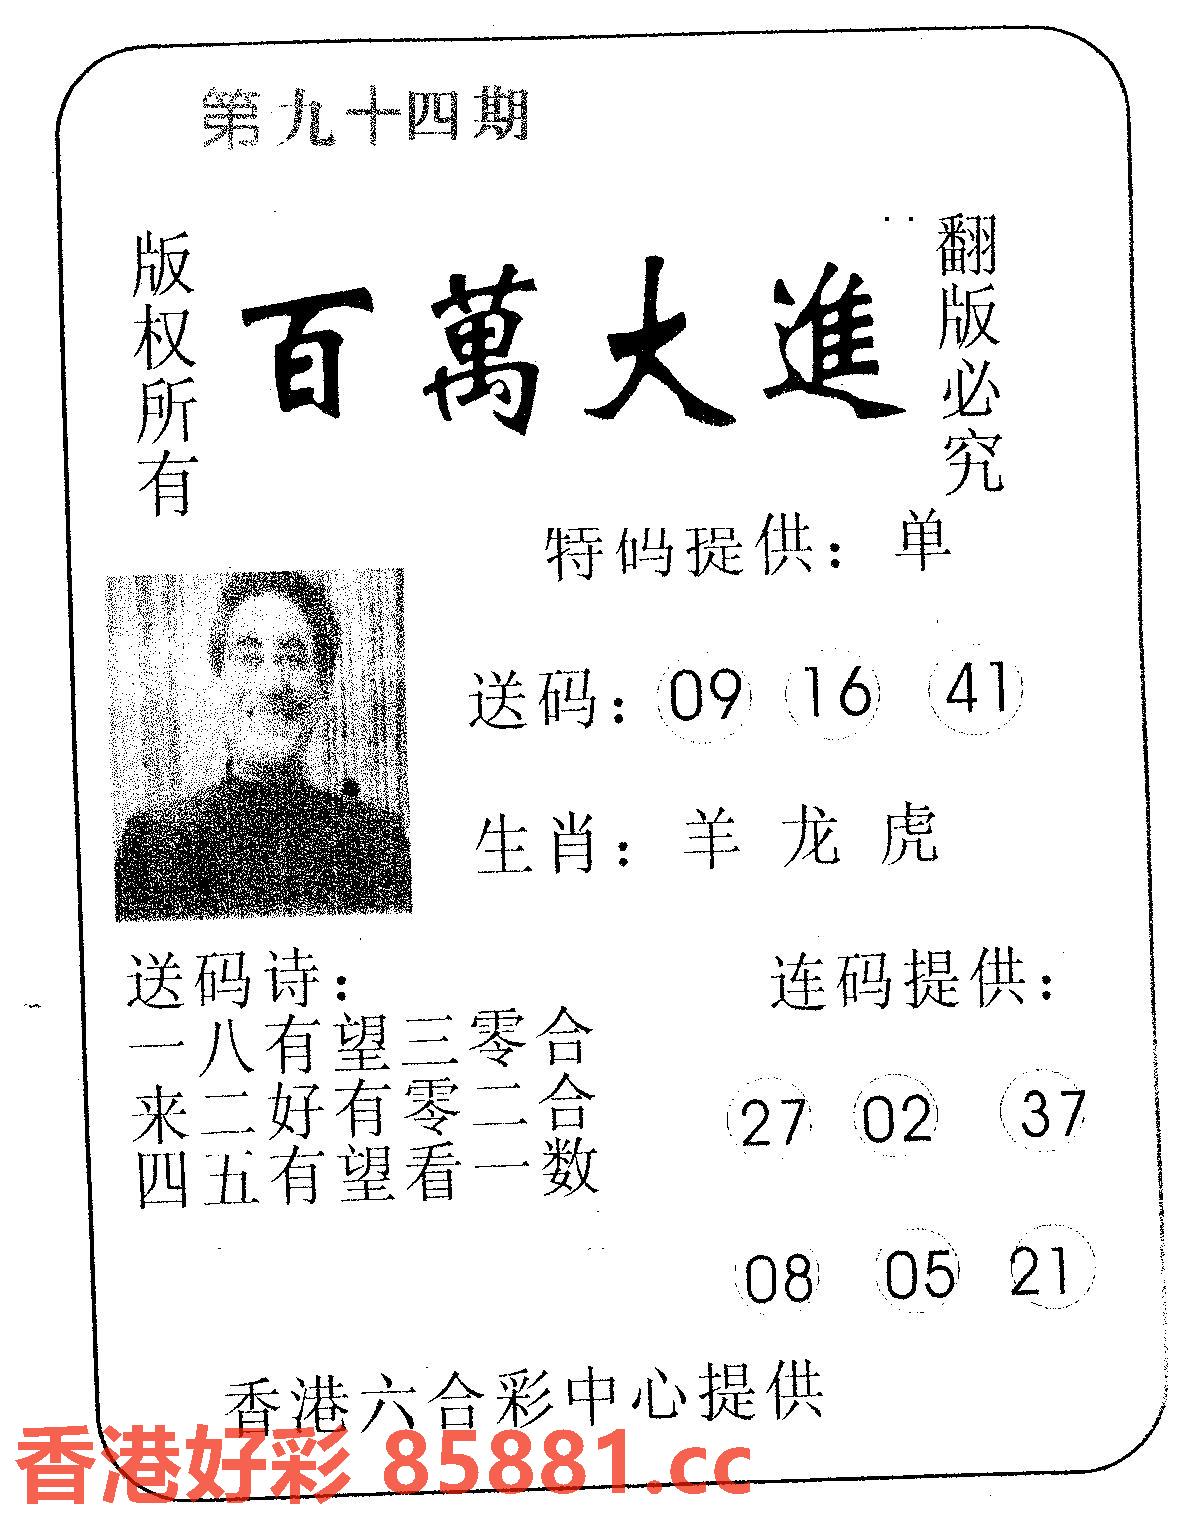 第九十四期
版权所有
百萬大進
翻版必究
特码提供：单
送码：09 16 41
生肖：羊 龙 虎
送码诗：
一八有望三零合
来二好有零二合
四五有望看一数
连码提供：
27 02 37
08 05 21
香港六合彩中心提供
香港好彩 85881.cc